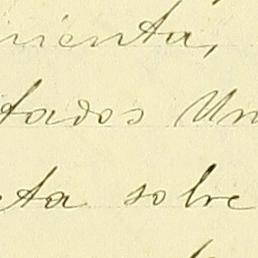 mienta,
tados Un
cta sobre